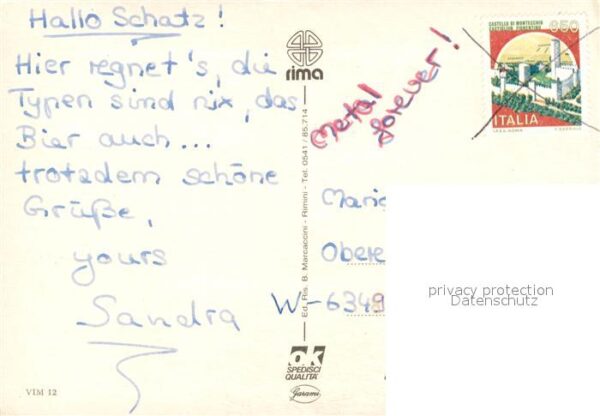 Hallo Schatz!
Hier regnet's, die
Typen sind nix, das
Bier auch...
trotzdem schöne
Grüße,
yours
Sandra
VIM 12
rima
Ed. Ris. B. Marcaccini - Rimini - Tel. 0541 / 85.714
ok
SPEDISCI
QUALITÀ
Garami
Metal
forever!
CASTELLO DI MONTECCHIO
CASTIGLION FIORENTINO
650
ITALIA
Marie
Obere
W-6349
privacy protection
Datenschutz